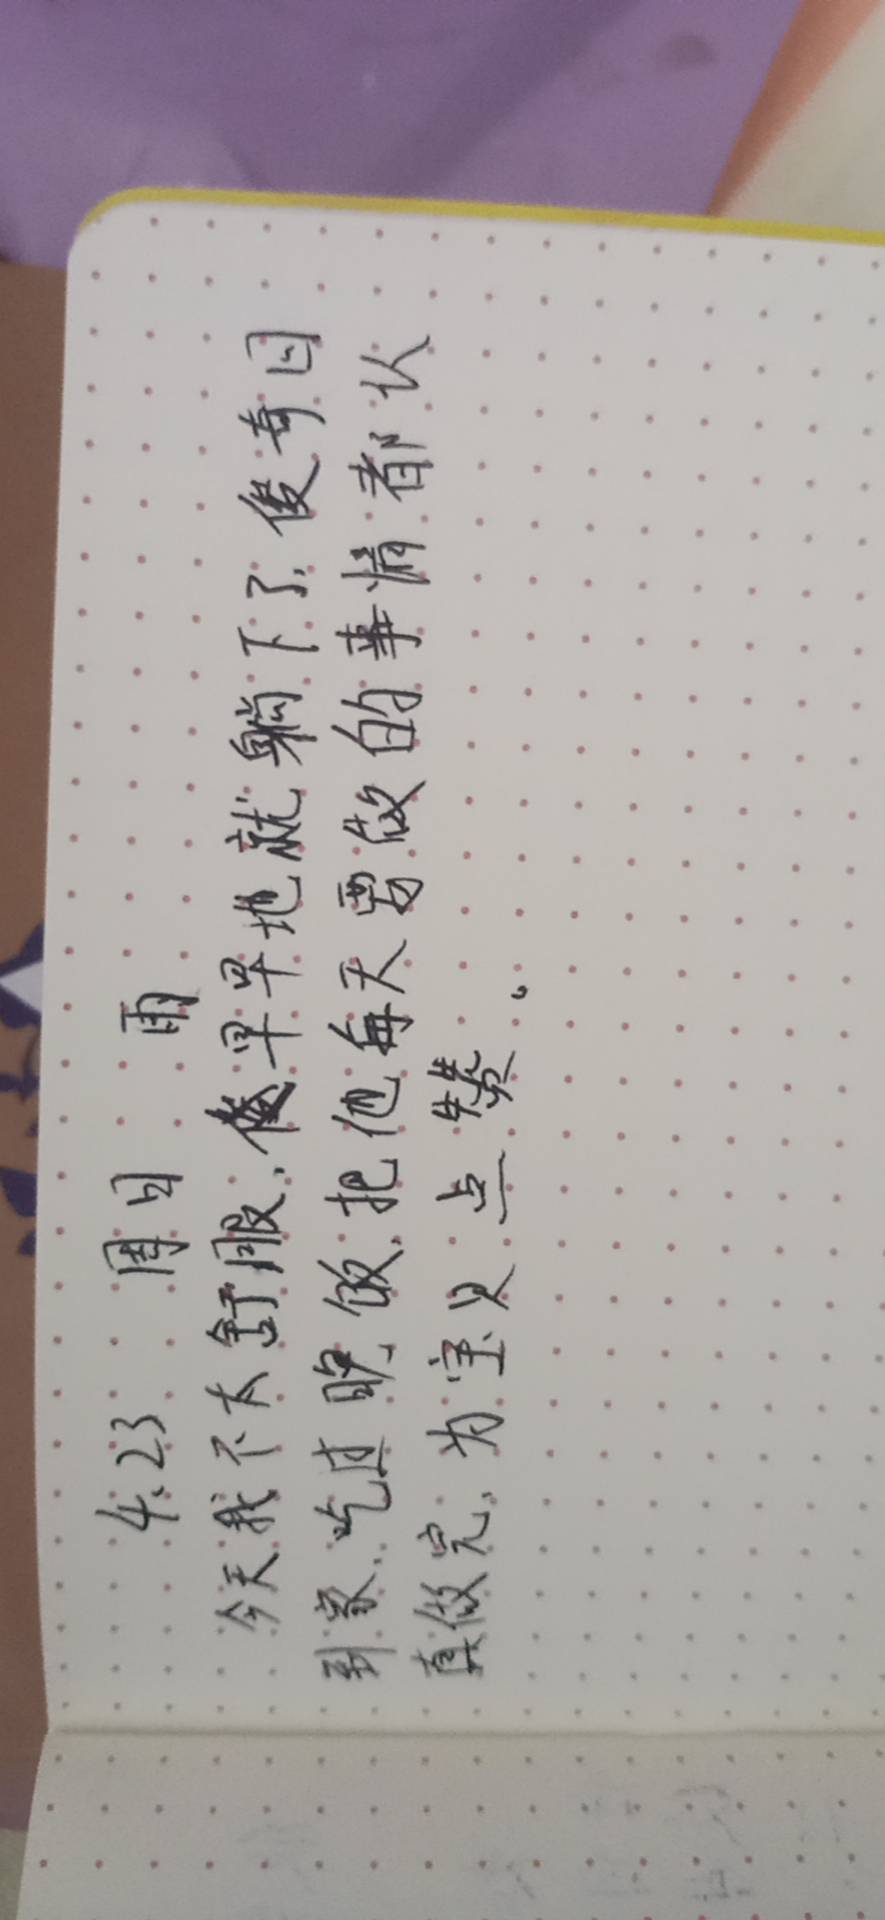 4.23 周日 雨
今天我不太舒服、早早地就躺下了,俊奇回
到家、吃过晚饭、把他每天需做的事情都认
真做完、为宝贝点赞。